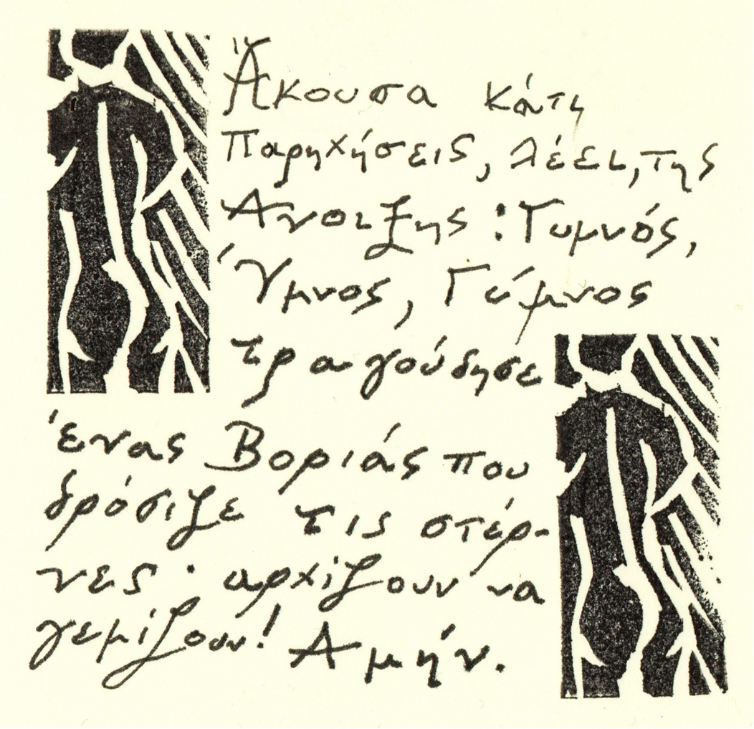 Άκουσα κάτι
παρηχήσεις, λέει, της
Άνοιξης: Γυμνός,
Ύμνος, Γύμνος
τραγούδησε
ένας Βοριάς που
δρόσιζε τις στέρ-
νες· αρχίζουν να
γεμίζουν! Αμήν.